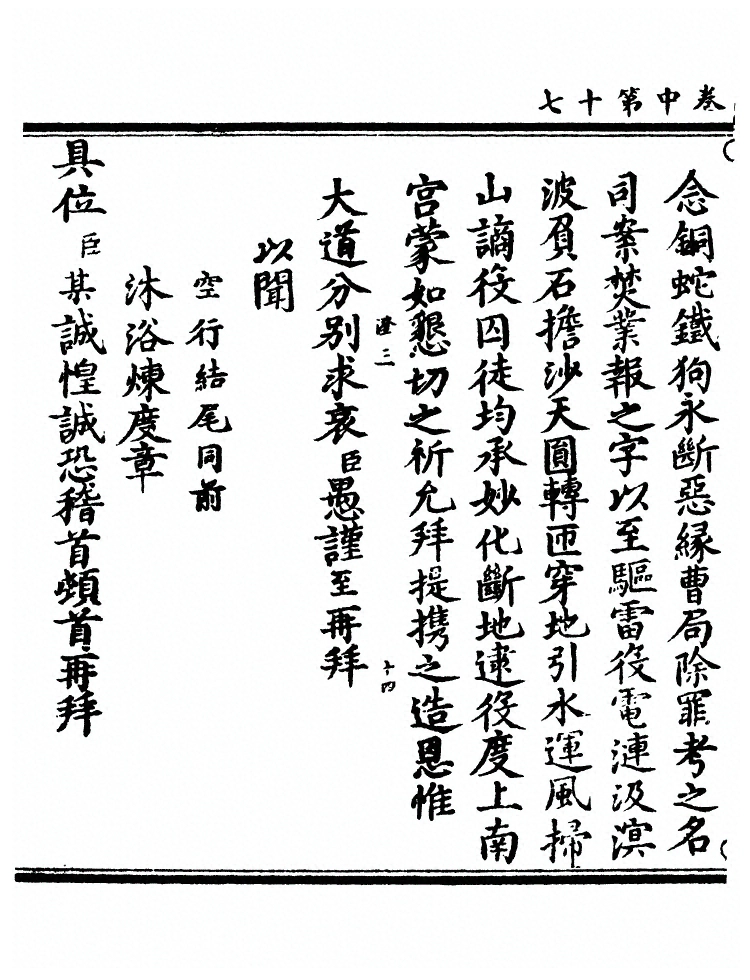 卷中第十七
念銅蛇鐵狗永斷惡緣曹局除罪考之名
司案焚業報之字以至驅雷役電漣汲溟
波負石擔沙天圓轉匝穿地引水運風掃
山謫役囚徒均承妙化斷地逮役度上南
宮蒙如懇切之祈允拜提携之造恩惟
澄三
十四
大道分別求哀臣愚謹至再拜
以聞
空行結尾同前
沐浴煉度章
具位臣某誠惶誠恐稽首頓首再拜